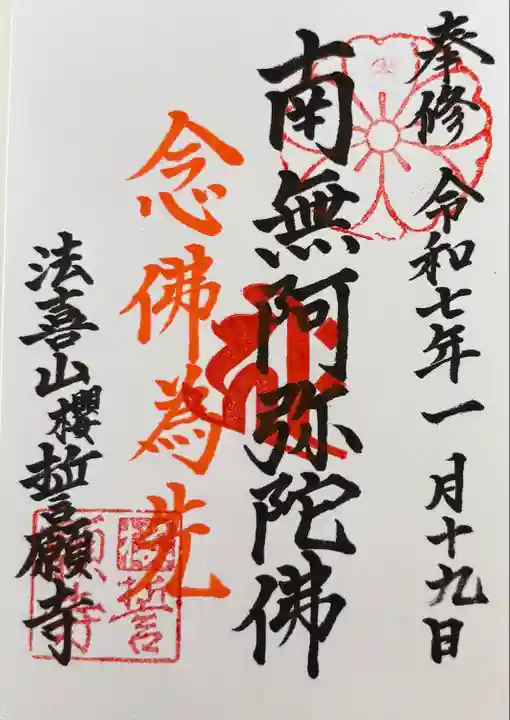 奉修 令和七年一月十九日
南無阿弥陀佛
念佛為先
法喜山櫻誓願寺
櫻誓
願寺